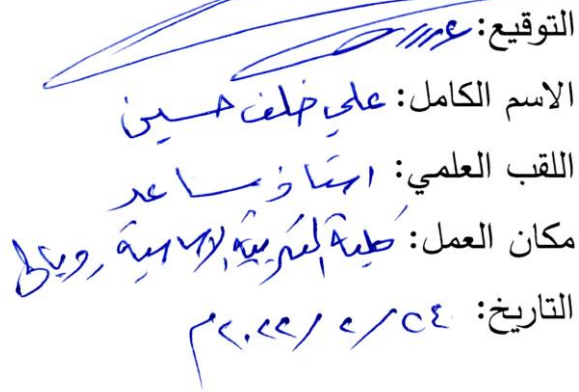 التوقيع:
الاسم الكامل: علي خلف حسين
اللقب العلمي: استاذ مساعد
مكان العمل: كلية التربية الاساسية ديالى
التاريخ: ٢٤ / ٢ / ٢٠٢٢م